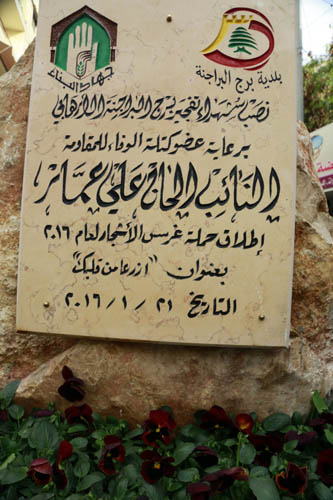 جهاد البناء
بلدية برج البراجنة
نصب شهداء تفجير برج البراجنة الارهابي
برعاية عضو كتلة الوفاء للمقاومة
النائب الحاج علي عمار
إطلاق حملة غرس الأشجار لعام ٢٠١٦
بعنوان "ازرعها من قلبك"
التاريخ ٢١ / ١ / ٢٠١٦